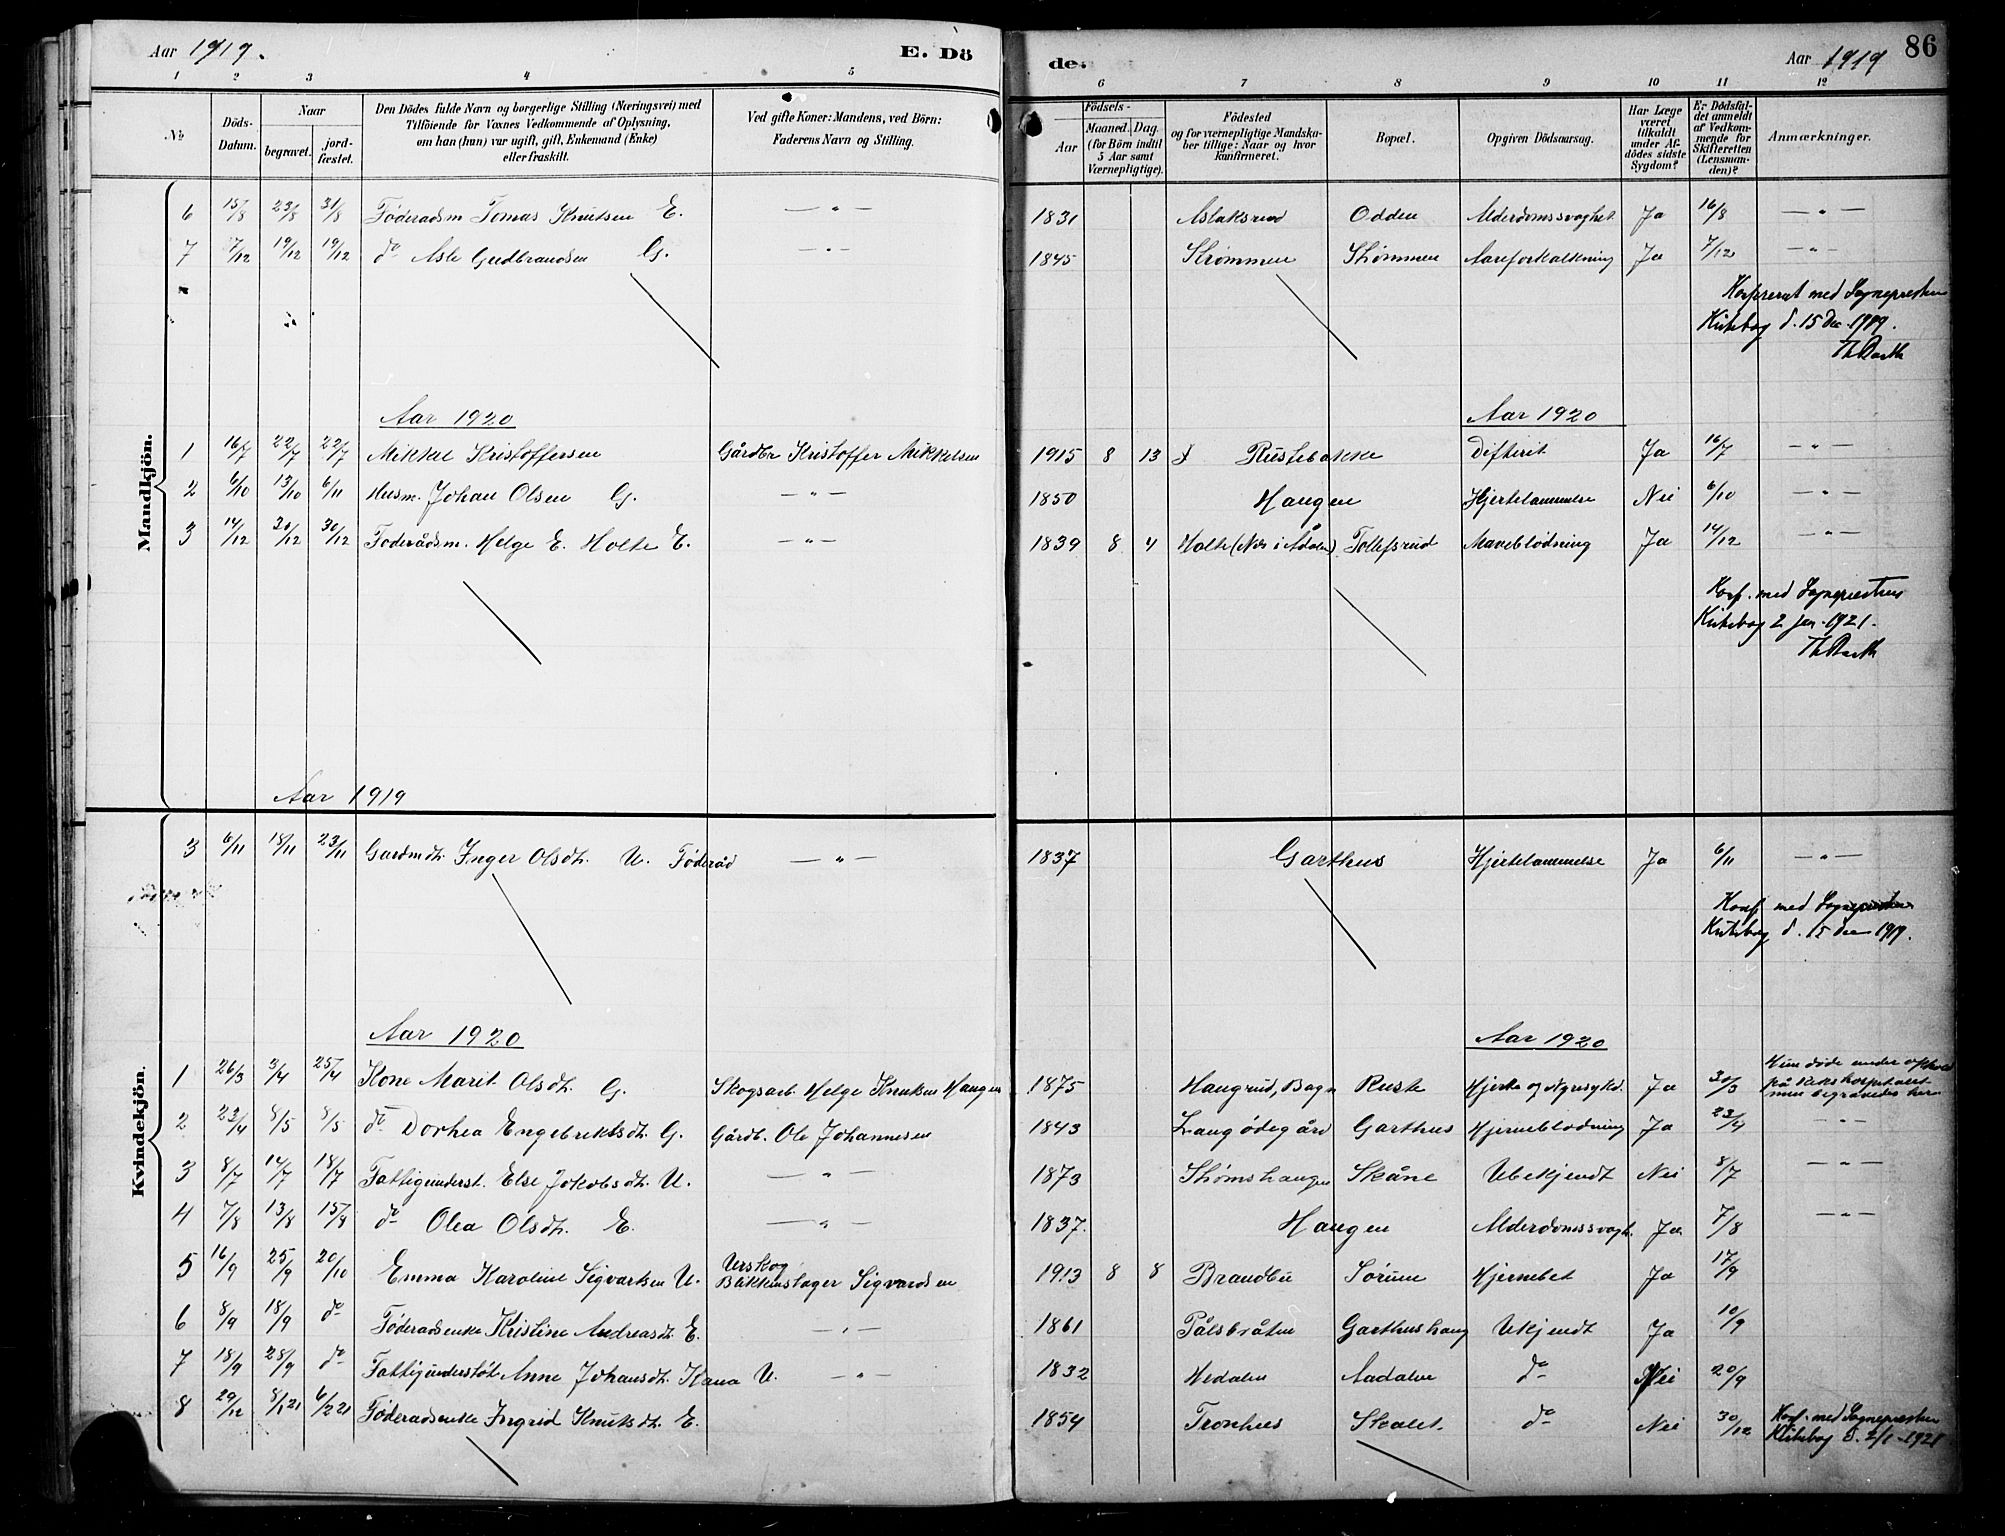 Aar 1919. E. Dö
de. Aar 1919 86
1 2 3 4 5 6 7 8 9 10 11 12
No Döds-Datum. Naar begravet. jord-fæstet. Den Dödes fulde Navn og borgerlige Stilling (Næringsvei) med Tilföiende for Voxnes Vedkommende af Oplysning, om han (hun) var ugift, gift, Enkemand (Enke) eller fraskilt. Ved gifte Koner: Mandens, ved Börn: Faderens Navn og Stilling.
Födsels- Aar Maaned. Dag. (for Börn indtil 5 Aar samt Værnepligtige). Födested og for værnepligtige Mandska-ber tillige: Naar og hvor konfirmeret. Bopæl. Opgiven Dödsaarsag. Har Læge været tilkaldt under Af-dödes sidste Sygdom? Er Dödsfal-det anmeldt af Vedkom-mende for Skifteretten (Lensman-den)? Anmærkninger.
Mandkjön.
6 15/8 23/8 31/8 Föderadsm Tomas Knutsen E. — " — 1831 Aslaksrud Odden Alderdomssvaghet Ja 16/8 — " —
7 7/12 19/12 19/12 do Asle Gudbrandsen G. — " — 1845 Strømmen Strømmen Aareforkalkning Ja 7/12 — " —
Konfereret med Sogneprestens
Kirkebog d. 15 Dec. 1919.
Th Barth
Aar 1920 Aar 1920
1 16/7 22/7 22/7 Mikkel Kristoffersen Gårdbr Kristoffer Mikkelsen 1915 8 13 Rustebakke Difterit Ja 16/7 — " —
2 6/10 13/10 6/11 Husm. Johan Olsen G. — " — 1850 Haugen Hjertelammelse Nei 6/10 — " —
3 14/12 20/12 30/12 Föderådsm. Helge E. Holte E. — " — 1839 8 4 Holte (Nes i Ådalen) Tollefsrud Maveblödning Ja 14/12 — " —
Konf. med Sogneprestens
Kirkebog 2 jan. 1921.
Th Barth
Aar 1919
Kvindekjön.
3 6/11 18/11 23/11 Gardmdt. Inger Olsdt. U. Föderåd — " — 1837 Garthus Hjertelammelse Ja 6/11 — " —
Konf med Sogneprestens
Kirkebog d. 15 dec 1919.
Aar 1920 Aar 1920
1 26/3 3/4 25/4 Kone Marit Olsdt. G. Skogsarb. Helge Knutsen Haugen 1875 Haugrud, Bagn Ruste Hjerte og Nyresykd. Ja 30/3 Hun døde under ophold på Rikshospitalet men begravedes her
2 23/4 8/5 8/5 do Dorhea Engebriktsdt. G. Gårdb. Ole Johannesen 1843 Langødegård Garthus Hjerneblödning Ja 23/4 — " —
3 8/7 14/7 18/7 Fattigunderst. Else Jakobsdt. U. — " — 1873 Strømshaugen Skåne Ubekjendt Nei 8/7 — " —
4 7/8 13/8 15/8 do Olea Olsdt. E. — " — 1837. Haugen Alderdomssvagh. Ja 7/8 — " —
5 16/9 25/9 20/10 Emma Karoline Sigvartsen U. Urskog Blikkenslager Sigvardsen 1913 8 8 Brandbu Sörum Hjernebet Ja 17/9
6 8/9 18/9 do Föderadsenke Kristine Andreasdt. E. — " — 1861 Pålsbråten Garthushaug Ukjendt Ja 10/9
7 18/9 28/9 do Fattigunderstöt. Anne Johansdt. Kana U. — " — 1832 Hedalen Aadalen do Nei 20/9
8 29/12 8/1 21 6/2 21 Föderadsenke Ingrid Knutsdt. E. 1854 Tronhus Skalet. do Nei 30/12 Konf. med Sogneprestens
Kirkebog d. 2/1 1921